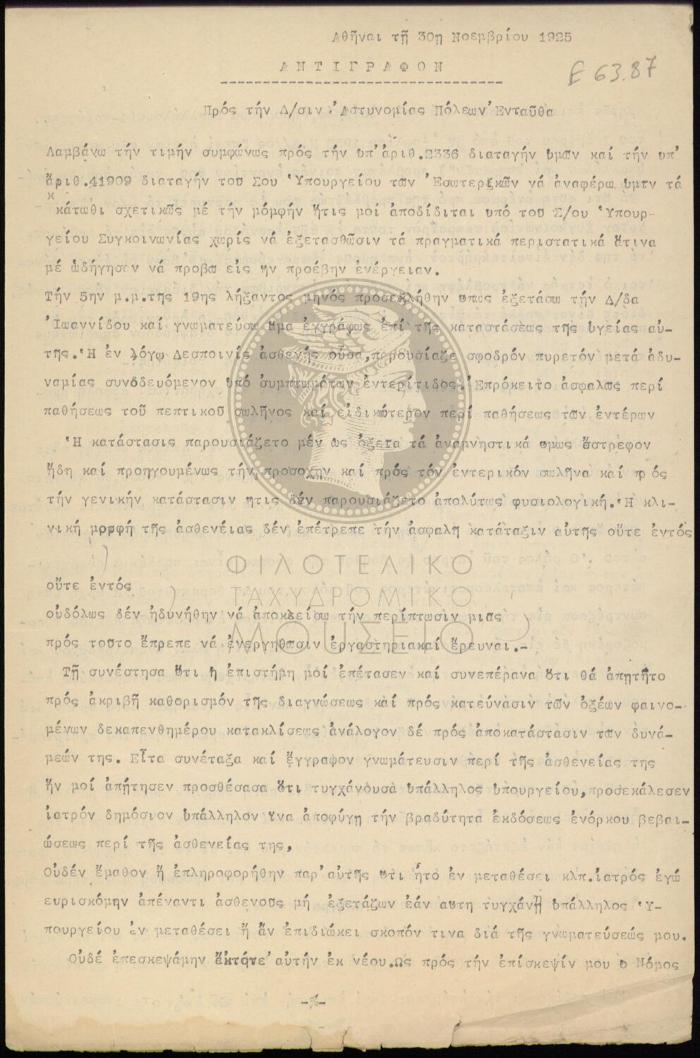 Αθῆναι τῇ 30η Νοεμβρίου 1925
Α Ν Τ Ι Γ Ρ Α Φ Ο Ν
Ε 63.87
Πρός τήν Δ/σιν 'Αστυνομίας Πόλεων 'Ενταῦθα
Λαμβάνω τήν τιμήν συμφώνως πρός τήν ὑπ'ἀριθ.2336 διαταγήν ὑμῶν καί τήν ὑπ'
ἀριθ.41909 διαταγήν τοῦ Σου 'Υπουργείου τῶν 'Εσωτερικῶν νά ἀναφέρω ὑμῖν τά
κάτωθι σχετικῶς μέ τήν μομφήν ἥτις μοί ἀποδίδιται ὑπό τοῦ Σ/ου 'Υπουρ-
γείου Συγκοινωνίας χωρίς νά ἐξετασθῶσιν τά πραγματικά περιστατικά ἅτινα
μέ ὡδήγησεν νά προβῶ εἰς ἥν προέβην ἐνέργειαν.
Τήν 5ην μ.μ.της 19ης λήξαντος μηνός προσεκλήθην ὅπως ἐξετάσω τήν Δ/δα
'Ιωαννίδου καί γνωματεύσω ἅμα ἐγγράφως ἐπί τῆς καταστάσεως τῆς ὑγείας αὐ-
τῆς.'Η ἐν λόγῳ Δεσποινίς ἀσθενής οὖσα,παρουσίαζε σφοδρόν πυρετόν μετά ἀδυ-
ναμίας συνοδευόμενον ὑπό συμπτωμάτων ἐντερίτιδος.'Επρόκειτο ἀσφαλῶς περί
παθήσεως τοῦ πεπτικοῦ σωλῆνος καί εἰδικώτερον περί παθήσεως τῶν ἐντέρων
'Η κατάστασις παρουσιάζετο μέν ὡς ὀξεῖα τά ἀναμνηστικά ὅμως ἔστρεφον
ἤδη καί προηγουμένως τήν προσοχήν καί πρός τόν ἐντερικόν σωλῆνα καί πρός
τήν γενικήν κατάστασιν ἥτις δέν παρουσιάζετο ἀπολύτως φυσιολογική.'Η κλι-
νική μορφή τῆς ἀσθενείας δέν ἐπέτρεπε τήν ἀσφαλῆ κατάταξιν αὐτῆς οὔτε ἐντός
οὔτε ἐντός
οὐδόλως δέν ἠδυνήθην νά ἀποκλείσω τήν περίπτωσιν μιᾶς
πρός τοῦτο ἔπρεπε νά ἐνεργηθῶσιν ἐργαστηριακαί ἔρευναι.-
Τῇ συνέστησα ὅτι ἡ ἐπιστήμη μοί ἐπέτασεν καί συνεπέρανα ὅτι θά ἀπῃτῆτο
πρός ἀκριβῆ καθορισμόν τῆς διαγνώσεως καί πρός κατεύνασιν τῶν ὀξέων φαινο-
μένων δεκαπενθημέρου κατακλίσεως ἀνάλογον δέ πρός ἀποκατάστασιν τῶν δυνά-
μεών της. Εἶτα συνέταξα καί ἔγγραφον γνωμάτευσιν περί τῆς ἀσθενείας της
ἥν μοί ἀπῄτησεν προσθέσασα ὅτι τυγχάνουσα ὑπάλληλος ὑπουργείου,προσεκάλεσεν
ἰατρόν δημόσιον ὑπάλληλον ἵνα ἀποφύγῃ τήν βραδύτητα ἐκδόσεως ἐνόρκου βεβαι-
ώσεως περί τῆς ἀσθενείας της,
Οὐδέν ἔμαθον ἤ ἐπληροφορήθην παρ'αὐτῆς ὅτι ἦτο ἐν μεταθέσει κλπ.ἰατρός ἐγώ
εὑρισκόμην ἀπέναντι ἀσθενοῦς μή ἐξετάζων ἐάν αὕτη τυγχάνῃ ὑπάλληλος 'Υ-
πουργείου ἐν μεταθέσει ἤ ἄν ἐπιδιώκει σκοπόν τινα διά τῆς γνωματεύσεώς μου.
Οὐδέ ἐπεσκεψάμην ἔκτοτε αὐτήν ἐκ νέου.Ως πρός τήν ἐπίσκεψίν μου ὁ Νόμος
ΦΙΛΟΤΕΛΙΚΟ
ΤΑΧΥΔΡΟΜΙΚΟ
ΜΟΥΣΕΙΟ